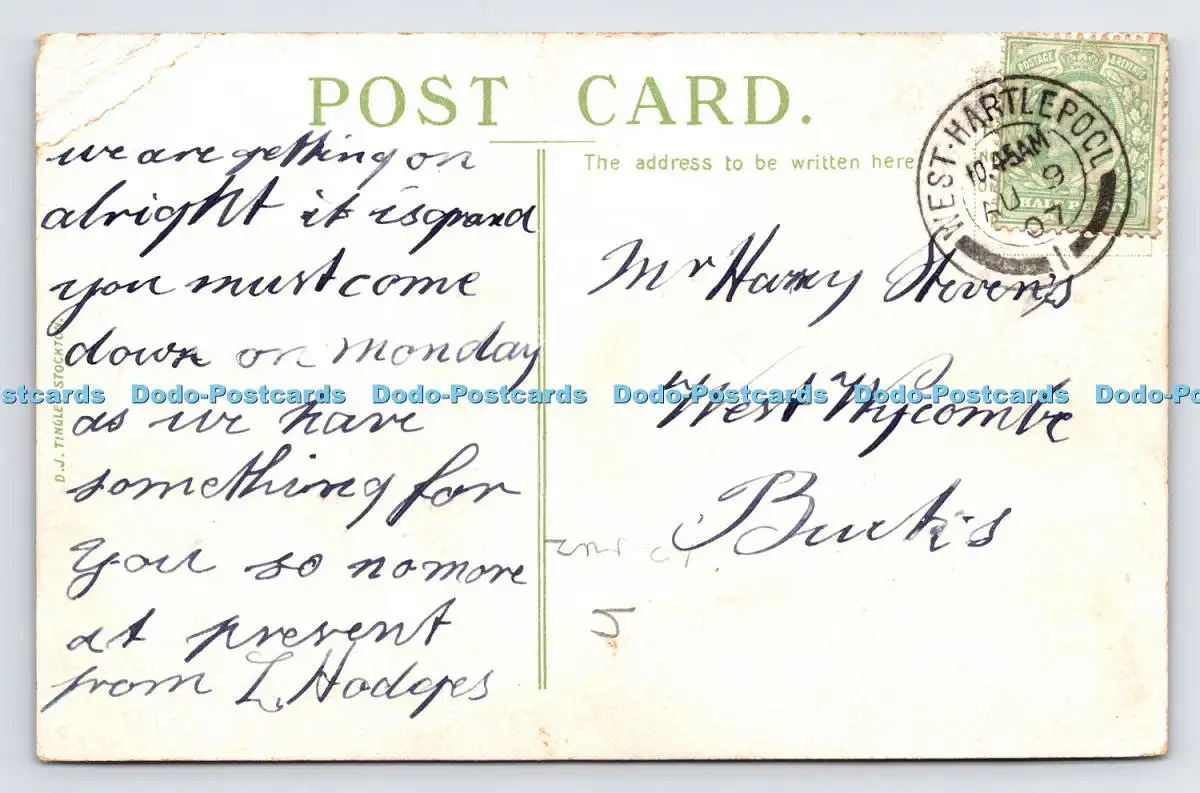 POST CARD.
The address to be written here
POSTAGE REVENUE
HALF P
WEST·HARTLEPOOL
10.45AM
AU 9
07
1
we are getting on
alright it is grand
you must come
down on monday
as we have
something for
you so no more
at present
from L. Hodges
Mr Harry Steven's
West Wycombe
Buck's
5
D.J. TINGLE STOCKTON.
stcards Dodo-Postcards Dodo-Postcards Dodo-Postcards Dodo-Postcards Dodo-Pos